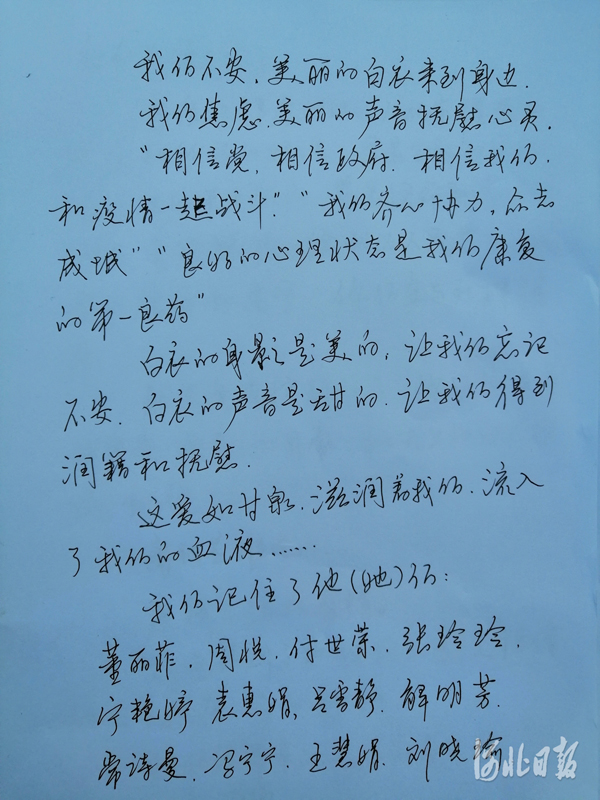 我们不安，美丽的白衣来到身边.
我们焦虑.美丽的声音抚慰心灵.
"相信党，相信政府.相信我们.
和疫情一起战斗""我们齐心协力，众志
成城""良好的心理状态是我们康复
的第一良药"
白衣的身影是美的，让我们忘记
不安.白衣的声音是甜的.让我们得到
润籍和抚慰.
这爱如甘泉.滋润着我们.流入
了我们的血液……
我们记住了他(她)们：
董丽菲，周悦，付世荣，张玲玲，
宁艳婷 袁惠娟，吕雪静.解明芳.
常诗曼.冯宁宁.王慧娟.刘晓瑜
河北日报